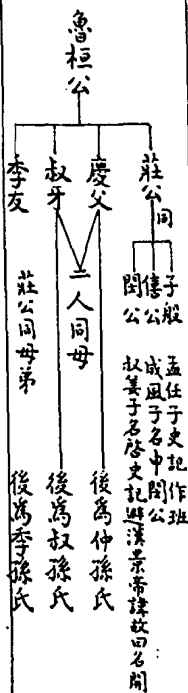 魯桓公
莊公同
子般 孟任子史記作班
僖公 成風子名申閔公
閔公 叔姜子名啓史記避漢景帝諱故曰名開
慶父
二人同母
後爲仲孫氏
叔牙
後爲叔孫氏
季友
莊公同母弟
後爲季孫氏